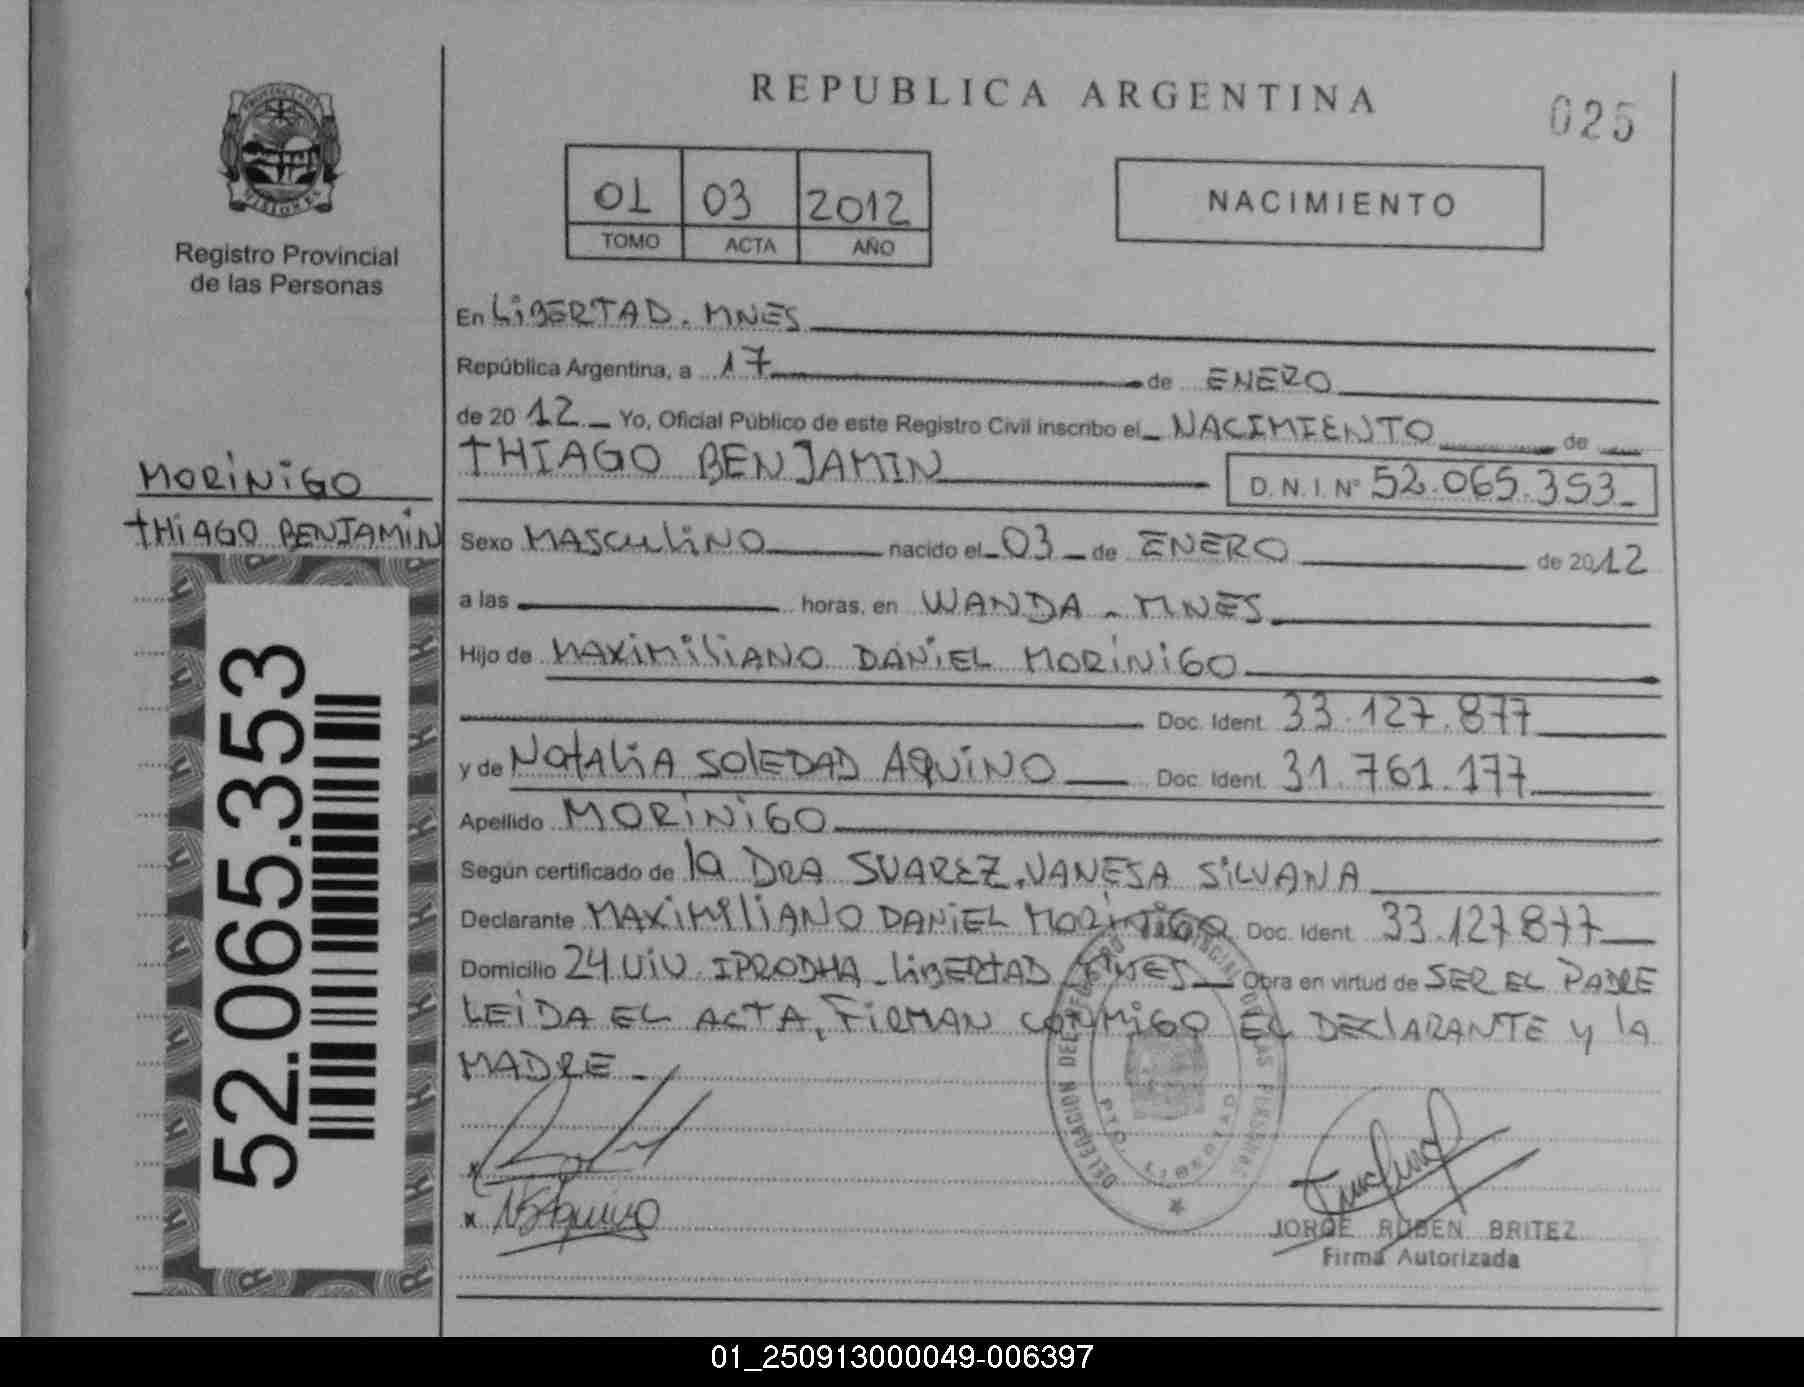 REPUBLICA ARGENTINA
025
PROVINCIA DE
MISIONES
Registro Provincial
de las Personas
01 03 2012
TOMO ACTA AÑO
NACIMIENTO
En LIBERTAD. MNES
República Argentina, a 17 de ENERO
de 2012 Yo, Oficial Público de este Registro Civil inscribo el NACIMIENTO de
THIAGO BENJAMIN
D.N.I. Nº 52.065.353
MORINIGO
THIAGO BENJAMIN
52.065.353
Sexo MASCULINO nacido el 03 de ENERO de 2012
a las horas, en WANDA - MNES
Hijo de MAXIMILIANO DANIEL MORINIGO
Doc. Ident. 33.127.877
y de NATALIA SOLEDAD AQUINO Doc. Ident. 31.761.177
Apellido MORINIGO
Según certificado de la DRA SUAREZ, VANESA SILVANA
Declarante MAXIMILIANO DANIEL MORINIGO Doc. Ident. 33.127877
Domicilio 24 VIV. IPRODHA - LIBERTAD MNES Obra en virtud de SER EL PADRE
LEIDA EL ACTA, FIRMAN CONMIGO EL DECLARANTE y la
MADRE
DELEGACION DEL REGISTRO PROVINCIAL DE LAS PERSONAS
PTO. LIBERTAD
x
x NSAquino
JORGE RUBEN BRITEZ
Firma Autorizada
01_250913000049-006397